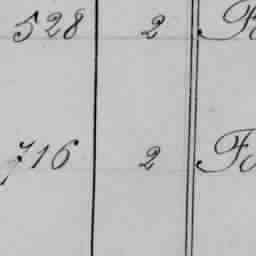 528 2
716 2